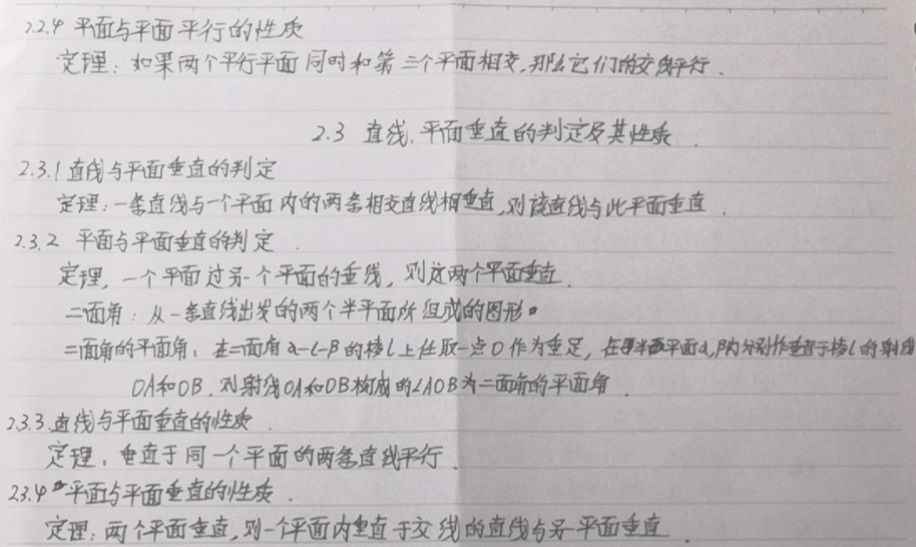 2.2.4 平面与平面平行的性质
定理：如果两个平行平面同时和第三个平面相交，那么它们的交线平行．
2.3 直线、平面垂直的判定及其性质．
2.3.1 直线与平面垂直的判定
定理：一条直线与一个平面内的两条相交直线相垂直，则该直线与此平面垂直．
2.3.2 平面与平面垂直的判定．
定理，一个平面过另一个平面的垂线，则这两个平面垂直．
二面角：从一条直线出发的两个半平面所组成的图形。
二面角的平面角、在二面角α-l-β的棱l上任取一点O作为垂足，在半平面α,β内分别作垂直于棱l的射线
OA和OB．则射线OA和OB构成的∠AOB为二面角的平面角．
2.3.3 直线与平面垂直的性质．
定理、垂直于同一个平面的两条直线平行．
2.3.4 平面与平面垂直的性质．
定理：两个平面垂直，则一个平面内垂直于交线的直线与另一平面垂直．